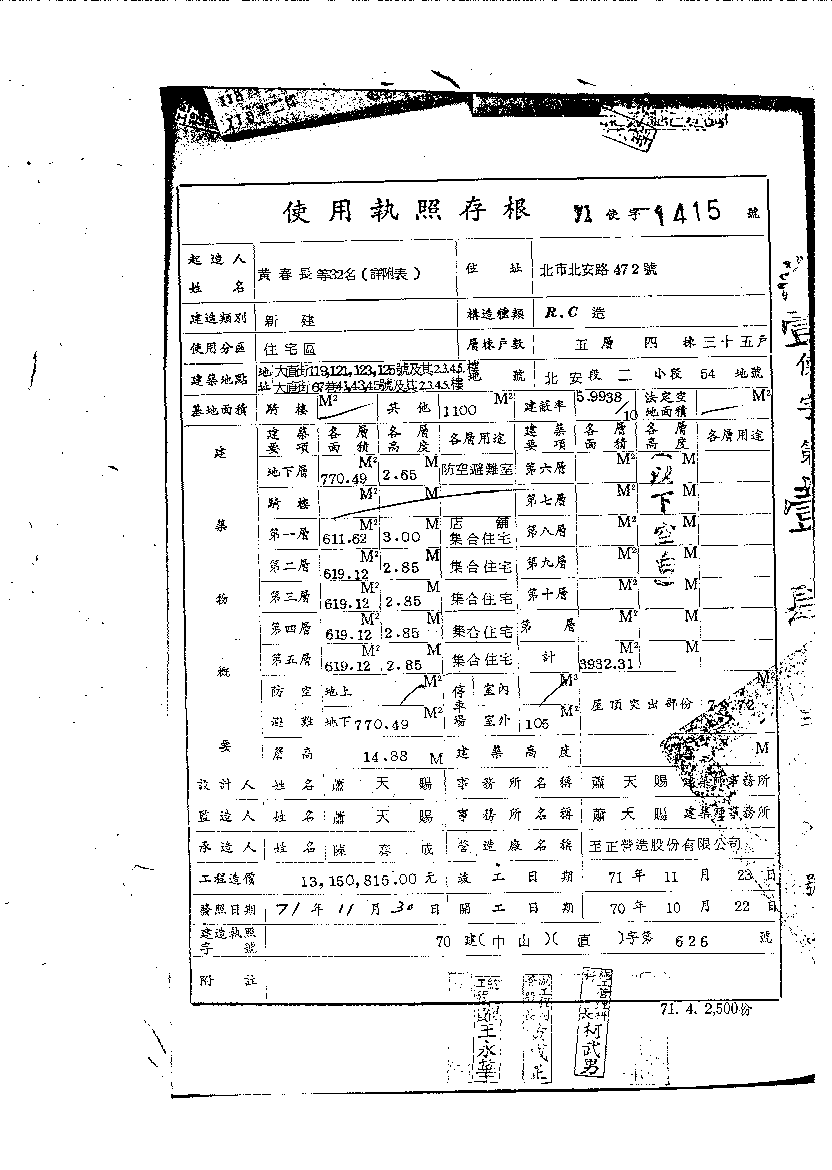 使用執照存根 71 使字 1415 號
起造人姓名 黃春長等32名(詳附表) 住址 北市北安路472號
建造類別 新建 構造種類 R.C 造
使用分區 住宅區 層棟戶數 五層 四棟 三十五戶
建築地點 地址 大直街119,121,123,125號及其2.3.4.5.樓 地號 北安段 二 小段 54 地號
大直街67巷41,43,45號及其2.3.4.5.樓
基地面積 騎樓 M² 其他 1100 M² 建蔽率 5.9938/10 法定空地面積 M²
建築物概要
建築要項 各層面積 各層高度 各層用途 建築要項 各層面積 各層高度 各層用途
地下層 770.49 M² 2.65 M 防空避難室 第六層 M² M
騎樓 M² M 第七層 M² M
第一層 611.62 M² 3.00 M 店舖 集合住宅 第八層 M² M
第二層 619.12 M² 2.85 M 集合住宅 第九層 M² M
第三層 619.12 M² 2.85 M 集合住宅 第十層 M² M
第四層 619.12 M² 2.85 M 集合住宅 第 層 M² M
第五層 619.12 M² 2.85 M 集合住宅 計 3932.31 M² M
(以下空白)
防空 地上 M² 停車場 室內 M² 屋頂突出部份 M²
避難 地下 770.49 M² 室外 105 M²
簷高 14.88 M 建築高度 M
設計人 姓名 蕭天賜 事務所名稱 蕭天賜 建築師事務所
監造人 姓名 蕭天賜 事務所名稱 蕭天賜 建築師事務所
承造人 姓名 陳齊成 營造廠名稱 至正營造股份有限公司
工程造價 13,150,815.00 元 竣工日期 71 年 11 月 23 日
發照日期 71 年 11 月 30 日 開工日期 70 年 10 月 22 日
建造執照字號 70 建(中山)(直)字第 626 號
附註
71. 4. 2,500份
王永華
柯武男